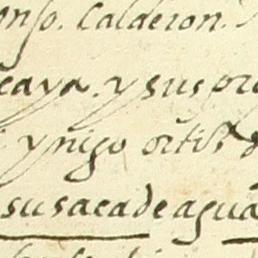 onso. Calderon.
caya. y sus pre
ynigo ortis d
susacadeagua